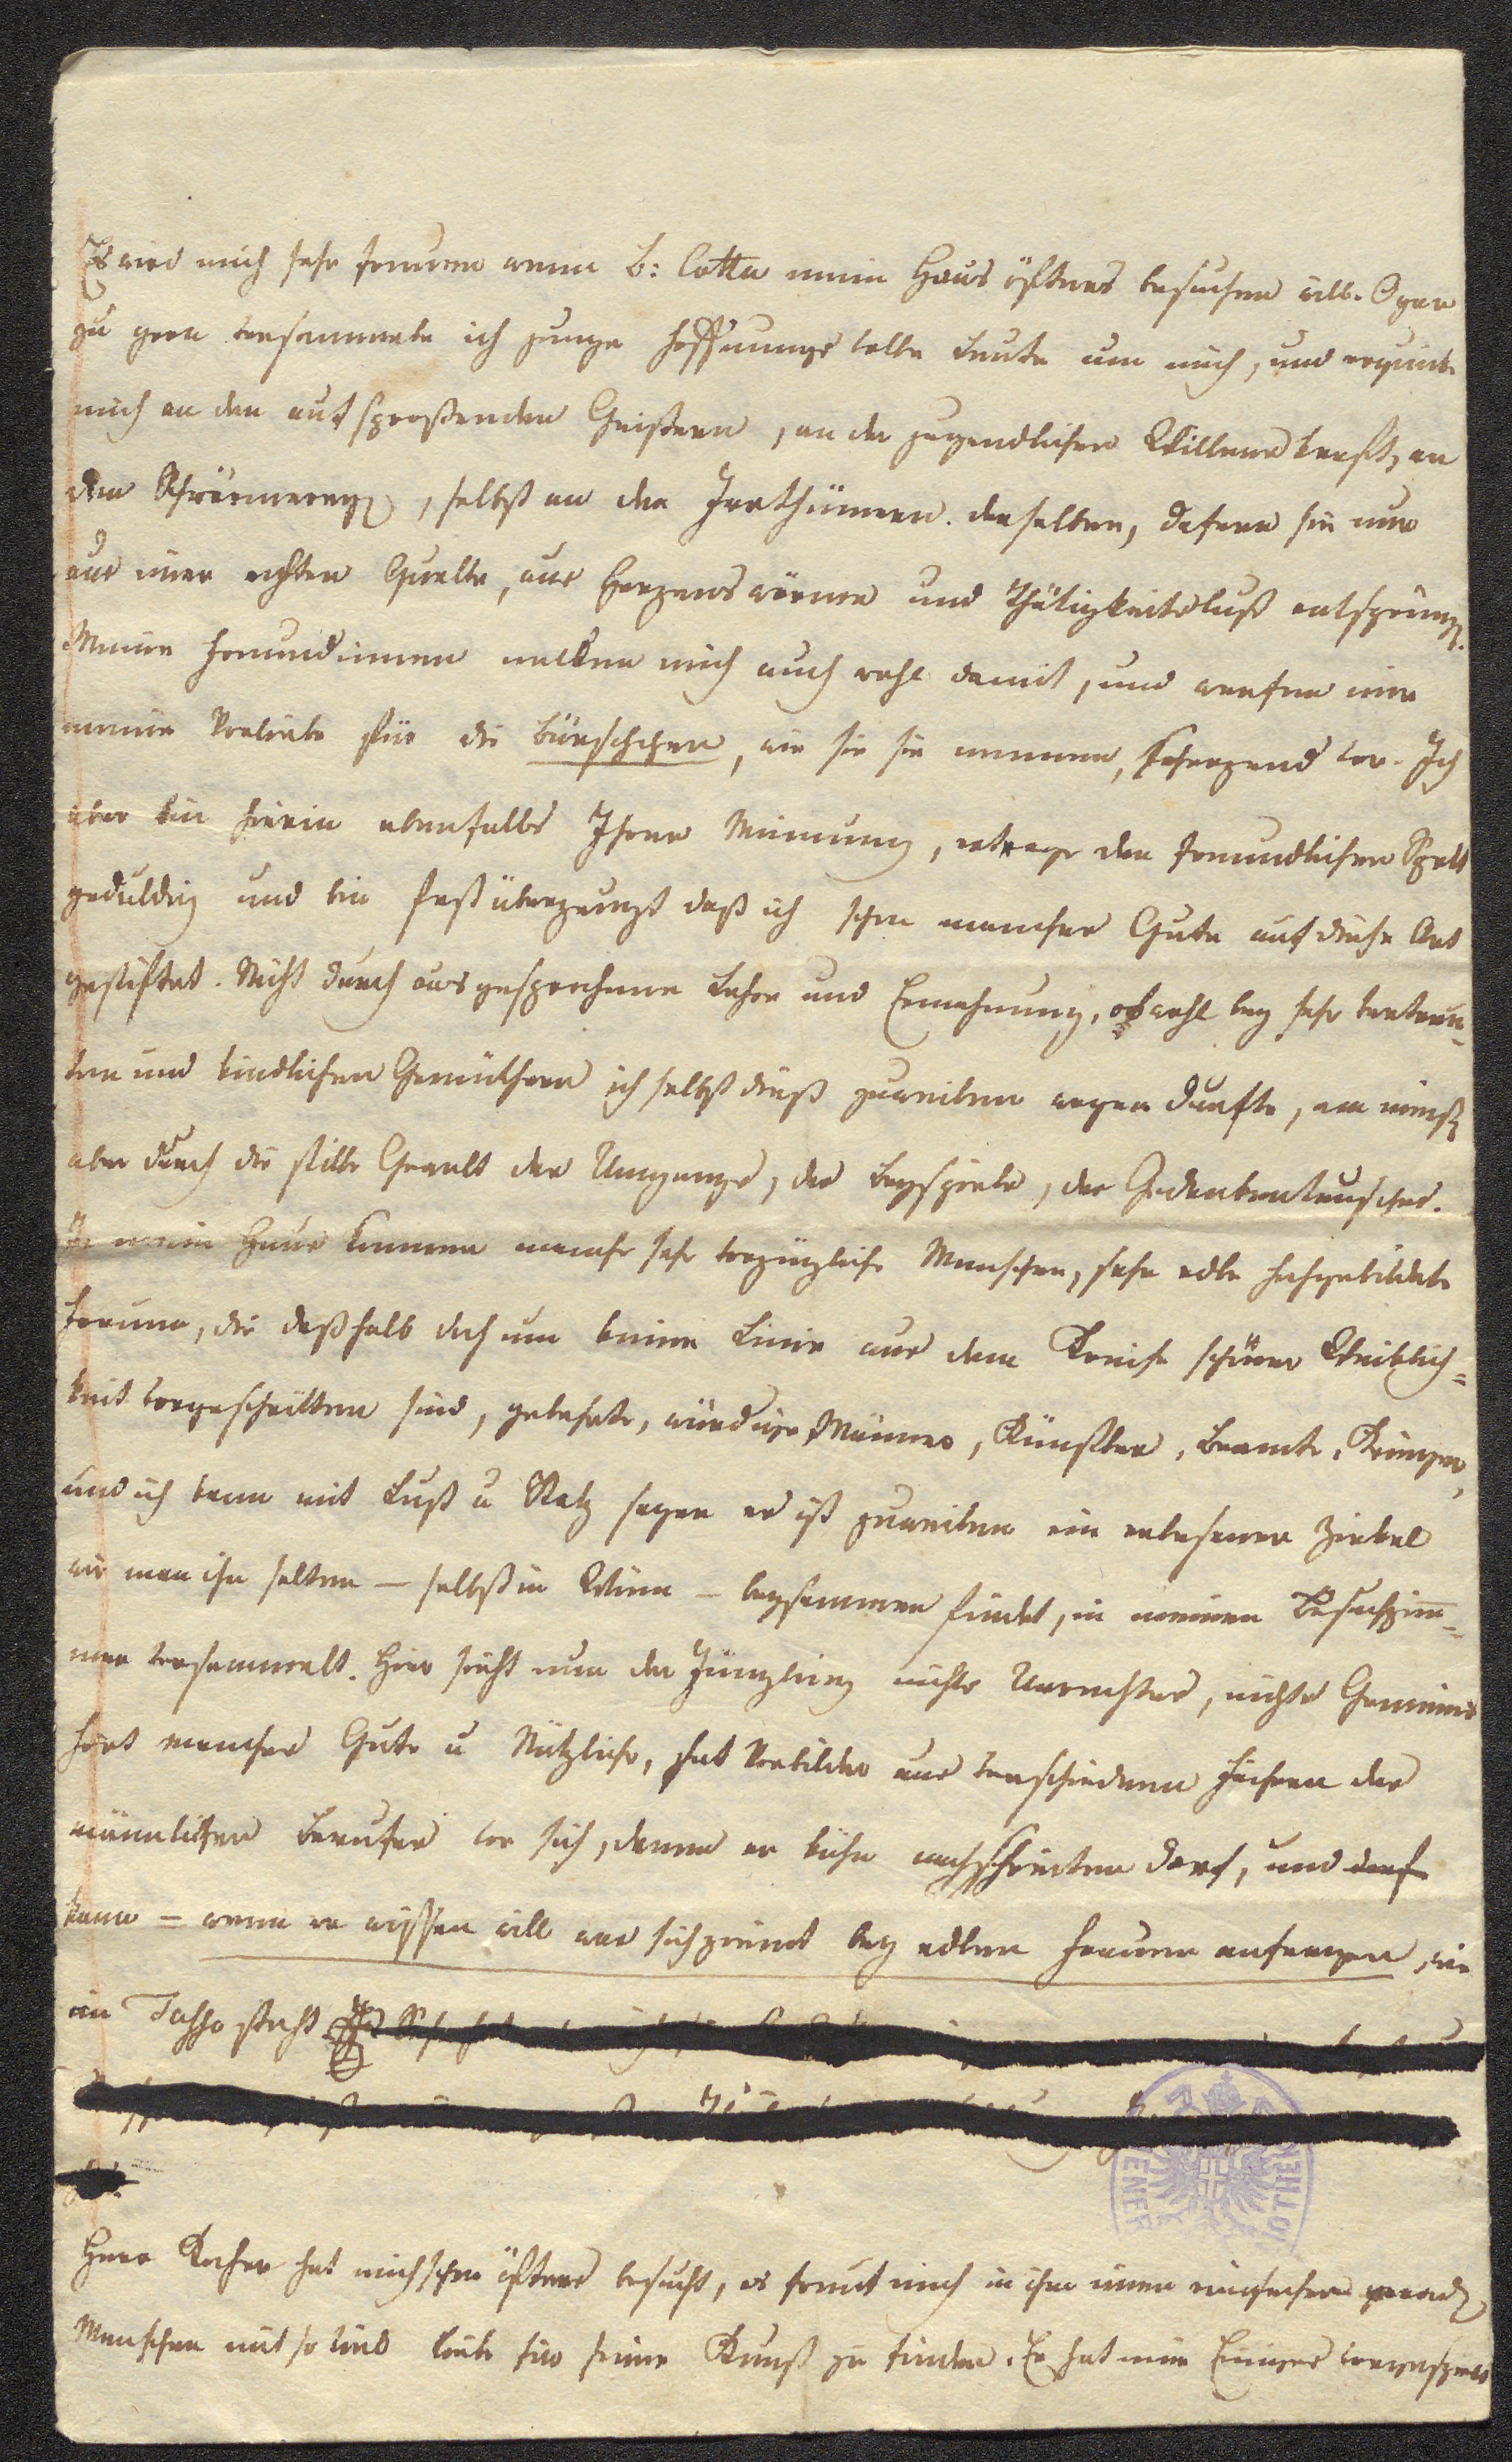 Es wird mich sehr freuen wenn B: Cotta mein Haus öfteres besuchen will. Gar
zu gern versammele ich junge hoffnungsvolle Leute um mich, und erquicke
mich an den aufsproßenden Geistern, an der jugendlichen Willenskraft, an
den Schwärmereyen, selbst an den Irrthümern derselben, dafern sie nur
aus einer echten Quelle, aus Herzenswärme und Thätigkeitslust entspringen.
Meine Freundinnen necken mich auch wohl damit, und werfen mir
meine Vorliebe für die Bürschchen, wie sie sie nennen, scherzend vor. Ich
aber bin hierin ebenfalls Ihrer Meinung, ertrage den freundlichen Spott
geduldig und bin fest überzeugt daß ich schon manches Gute auf diese Art
gestiftet. Nicht durch ausgesprochene Lehre und Ermahnung, obwohl bey sehr vertrau-
ten und kindlichen Gemüthern ich selbst dieß zuweilen wagen durfte, am meisten
aber durch die stille Gewalt des Umgangs, des Beyspiels, des Gedankentausches.
In mein Haus kommen manche sehr vorzügliche Menschen, sehr edle hochgebildete
Frauen, die deßhalb doch um keine Linie aus dem Kreise schöner Weiblich-
keit vorgeschritten sind, gelehrte, würdige Männer, Künstler, Beamte, Krieger,
und ich kann mit Lust u Stolz sagen es ist zuweilen ein erlesener Zirkel
wie man ihn selten – selbst in Wien – beysammen findet, in meinem Besuchzim-
mer versammelt. Hier sieht nun der Jüngling nichts Unrechtes, nichts Gemeines
hört manches Gute u Nützliche, hat Vorbilder aus verschiedenen Fächern des
männlichen Berufes vor sich, denen er kühn nachschreiten darf, und darf
kann – wenn er wissen will was sich ziemt bey edlen Frauen anfragen, wie
im Tasso steht.
Herr Kocher hat mich schon öfters besucht, es freut mich in ihm einen einfachen geraden
Menschen mit so viel Liebe für seine Kunst zu finden. Er hat mir Einiges vorgespielt